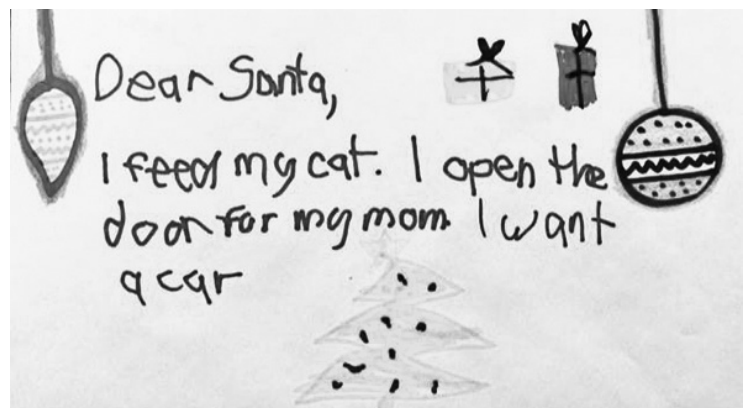 Dear Santa,
I feed my cat. I open the
door for my mom I want
a car